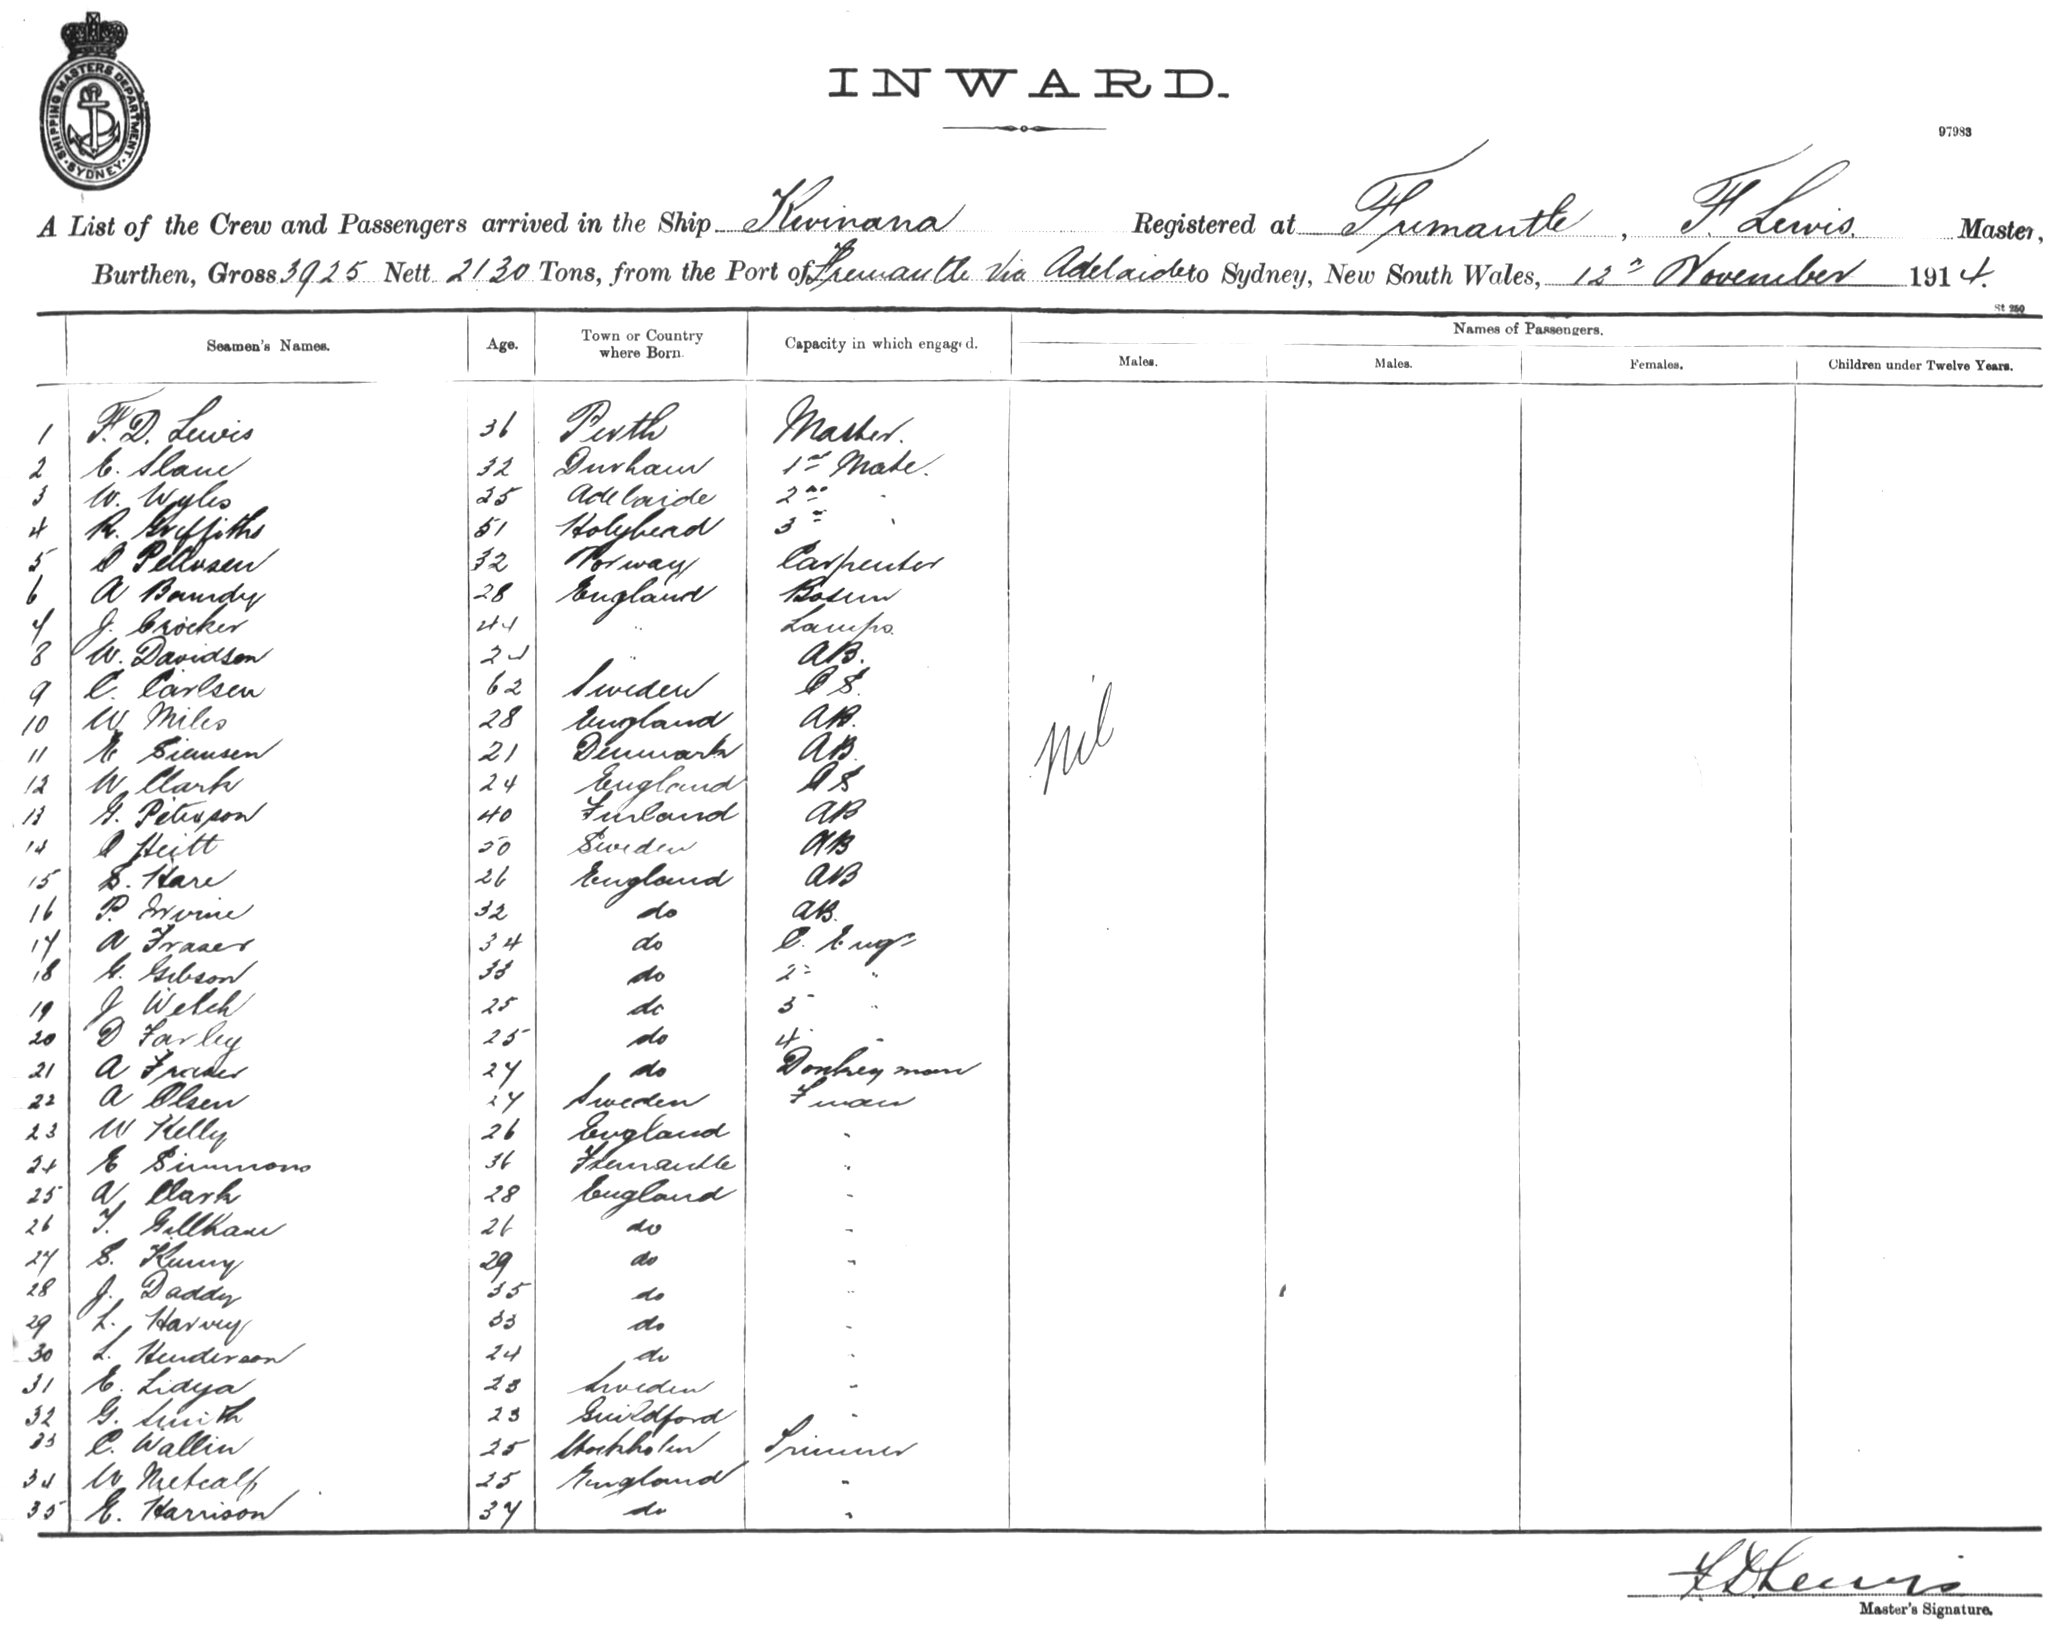 SHIPPING MASTERS DEPARTMENT. SYDNEY
INWARD.
97983
A List of the Crew and Passengers arrived in the Ship Kwinana Registered at Fremantle, F. Lewis. Master,
Burthen, Gross 3925 Nett 2130 Tons, from the Port of Fremantle Via Adelaide to Sydney, New South Wales, 12 November 1914.
St 250
Seamen's Names. Age. Town or Country where Born. Capacity in which engaged. Names of Passengers.
Males. Males. Females. Children under Twelve Years.
1 F. D. Lewis 36 Perth Master.
2 E. Slane 32 Durham 1st Mate.
3 W. Wyles 25 Adelaide 2nd "
4 R. Griffiths 51 Holyhead 3rd "
5 32 Norway Carpenter
6 A 28 England Bosun
7 J. Crocker 44 " Lamps.
8 W. Davidson 24 " AB.
9 C. Carlsen 62 Sweden O S.
10 W Miles 28 England AB.
11 E 21 Denmark AB.
12 W Clark 24 England O S
13 G. Peterson 40 Finland AB
14 Heitt 50 Sweden AB
15 S. Hare 26 England AB
16 P. Irvine 32 do AB.
17 A Fraser 34 do C. Engr
18 G. Gibson 33 do 2nd "
19 J Welch 25 do 3 "
20 D Farley 25 do 4 "
21 A Fraser 27 do Donkeyman
22 A Olsen 27 Sweden Fman
23 W Kelly 26 England "
24 E Simmons 36 Fremantle "
25 A Clark 28 England "
26 T. Gillham 26 do "
27 S. Kenny 29 do "
28 J. Daddy 35 do "
29 L. Harvey 33 do "
30 L. Henderson 24 do "
31 E. Lidya 23 Sweden "
32 G. Smith 23 Guildford "
33 C. Wallin 25 Stockholm Trimmer
34 W Metcalf 25 England "
35 E. Harrison 37 do "
nil
F D Lewis
Master's Signature.